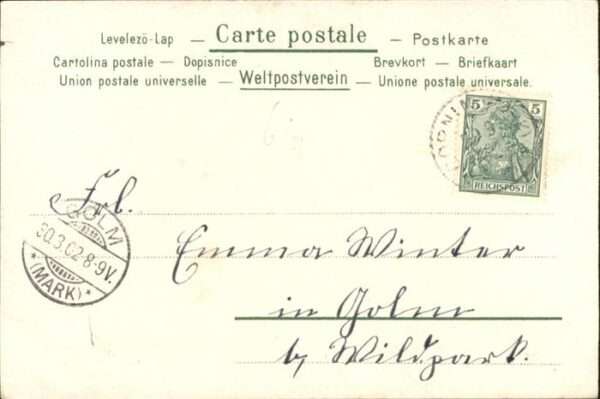 Levelezö-Lap — Carte postale — Postkarte
Cartolina postale — Dopisnice Brevkort — Briefkaart
Union postale universelle — Weltpostverein — Unione postale universale.
5 5
REICHSPOST
Frl.
GOLM
30.3.02 8-9V.
*(MARK)*
Emma Winter
in Golm
b/ Wildpark.